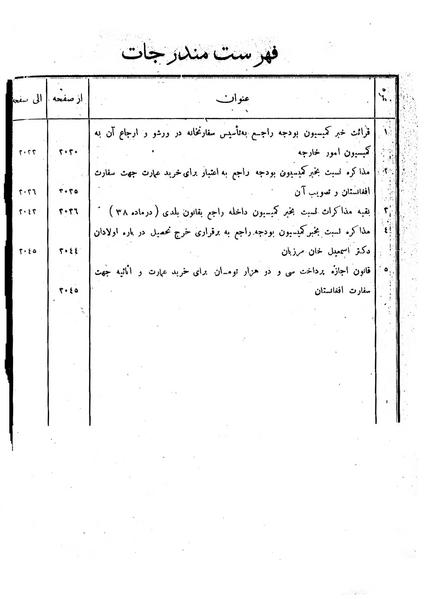 فهرست مندرجات
عنوان از صفحه الی صفحه
۱ قرائت خبر کمیسیون بودجه راجع به‌تأسیس سفارتخانه در ورشو و ارجاع آن به
کمیسیون امور خارجه ۲۰۲۰ ۲۰۲۲
۲ مذاکره نسبت بخبر کمیسیون بودجه راجع به اعتبار برای خرید عمارت جهت سفارت
افغانستان و تصویب آن ۲۰۲۵ ۲۰۲۶
۳ بقیه مذاکرات نسبت بخبر کمیسیون داخله راجع بقانون بلدی (درماده ۳۸) ۲۰۲۶ ۲۰۴۲
۴ مذاکره نسبت بخبر کمیسیون بودجه راجع به برقراری خرج تحصیل در باره اولادان
دکتر اسمعیل خان مرزبان ۲۰٤٤ ۲۰٤٥
۵ قانون اجازه پرداخت سی و دو هزار تومان برای خرید عمارت و اثاثیه جهت
سفارت افغانستان ۲۰٤٥